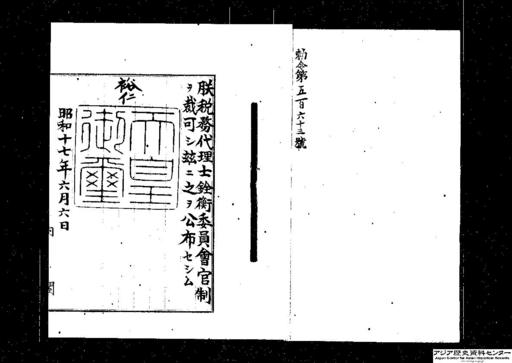 勅令第五百六十三號
朕税務代理士銓衡委員會官制
ヲ裁可シ茲ニ之ヲ公布セシム
裕仁
天皇御璽
昭和十七年六月六日
内 閣
アジア歴史資料センター
Japan Center for Asian Historical Records